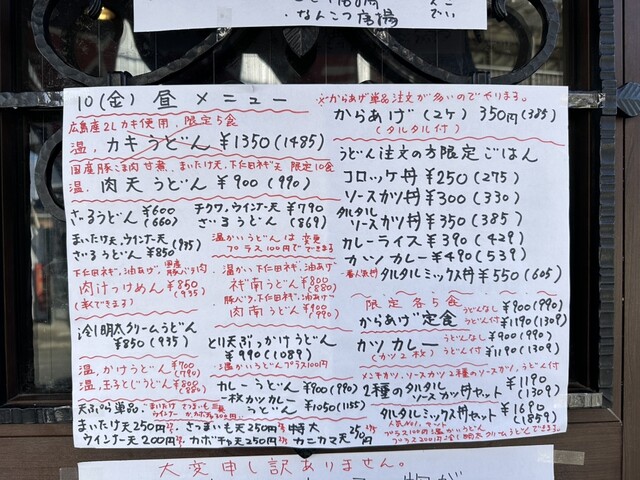 ・なんこつ唐揚
10(金) 昼 メニュー
広島産2Lカキ使用、限定5食
温、カキうどん ¥1350(1485)
国産豚こま肉甘煮、まいたけ天、下仁田ネギ天 限定10食
温、肉天うどん ¥900(990)
ざるうどん ¥600(660)
チクワ、ウインナー天 ざるうどん ¥790(869)
まいたけ天、ウインナー天 ざるうどん ¥850(935)
温かいうどんは変更 プラス100円でできます
下仁田ネギ、油あげ、国産豚バラ肉
肉汁つけめん ¥850(935)
温かい、下仁田ネギ、油あげ
ネギ南うどん ¥800(880)
豚バラ、下仁田ネギ、油あげ
肉南うどん ¥900(990)
冷明太クリームうどん ¥850(935)
とり天ぶっかけうどん ¥990(1089)
温かいうどんプラス100円
温、かけうどん ¥700(770)
温、玉子とじうどん ¥800(880)
カレーうどん ¥900(990)
一枚カツカレーうどん ¥1050(1155)
天ぷら単品、まいたけ
まいたけ天250円 さつまいも天250円 特大
ウインナー天200円 カボチャ天250円 カニカマ天
※からあげ単品注文が多いのでやります。
からあげ(2ケ) 350円(385)
(タルタル付)
うどん注文の方限定ごはん
コロッケ丼 ¥250(275)
ソースカツ丼 ¥300(330)
タルタルソースカツ丼 ¥350(385)
カレーライス ¥390(429)
カツカレー ¥490(539)
一番人気丼 タルタルミックス丼 ¥550(605)
限定各5食
からあげ定食 うどんなし ¥900(990) うどん付 ¥1190(1309)
カツカレー(カツ2枚) うどんなし ¥900(990) うどん付 ¥1190(1309)
メンチカツ、ソースカツ2種のソースカツ、うどん付
2種のタルタルソースカツ丼セット ¥1190(1309)
タルタルミックス丼セット ¥1690(1859)
人気No.1セット
プラス100円温かいうどん
プラス200円冷明太クリームうどんできます。
大変申し訳ありません。